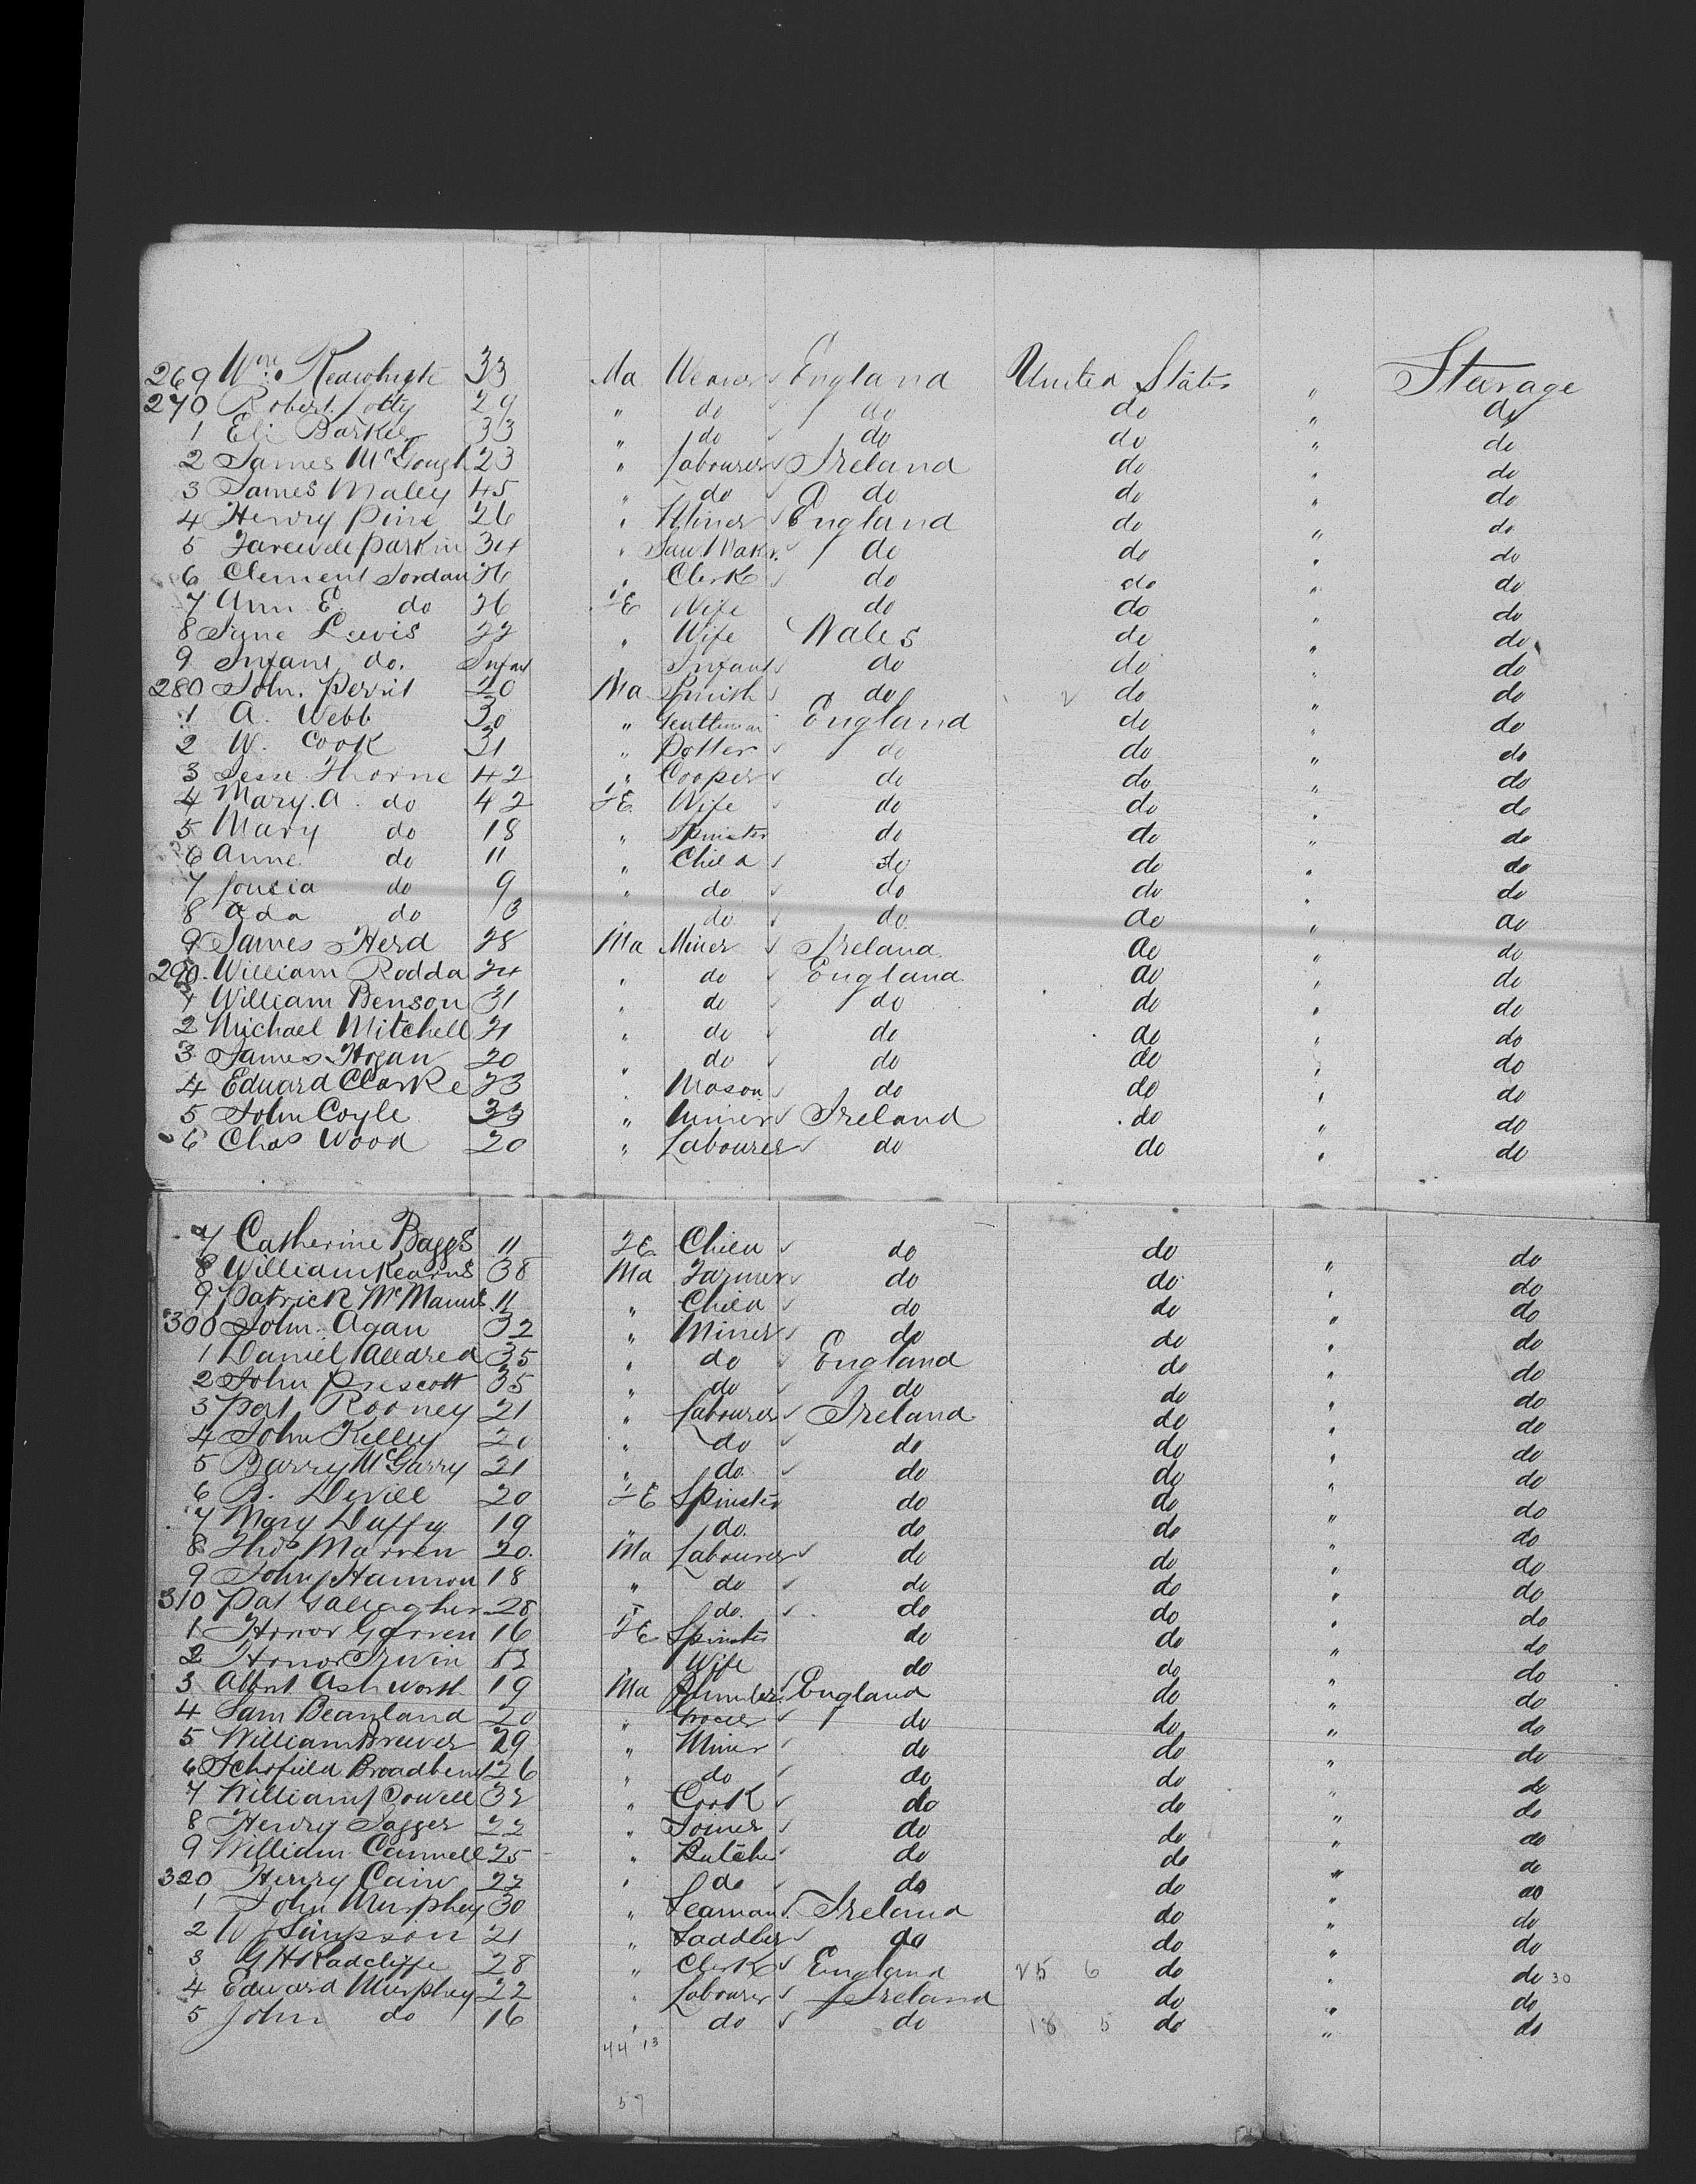 269 Wm. 33 Ma Weaver England United States " Starage
270 Robert 29 " do do do " do
1 Eli Barker 33 " do do do " do
2 James McGough 23 " Labourer Ireland do " do
3 James Maley 45 " do do do " do
4 Henry Pine 26 " Miner England do " do
5 Farewell Parkin 34 " Saw Makr. do do " do
6 Clement Jordan 26 " Clerk do do " do
7 Ann E. do 26 FE Wife do do " do
8 Jane Lewis 22 " Wife Wales do " do
9 Infant do. Infant Infant do do " do
280 John. Perrit 20 Ma Smith do do " do
1 A. Webb 30 " Gentleman England do " do
2 W. Cook 31 " Potter do do " do
3 Jesse Thorne 42 " Cooper do do " do
4 Mary. A. do 42 FE Wife do do " do
5 Mary do 18 " Spinster do do " do
6 Anne do 11 " Child do do " do
7 Louisa do 9 " do do do " do
8 Ada do 3 do do do " do
9 James Herd 28 Ma Miner Ireland do " do
290. William Rodda 24 " do England do " do
1 William Benson 31 " do do do " do
2 Michael Mitchell 21 " do do do " do
3 James Hogan 20 " do do do " do
4 Edward Clarke 23 " Mason do do " do
5 John Coyle 33 " Miner Ireland do " do
6 Chas Wood 20 " Labourer do do " do
7 Catherine Baggs 11 FE Child do do " do
8 William Kearns 38 Ma Farmer do do " do
9 Patrick McManus 11 " Child do do " do
300 John Agan 32 " Miner do do " do
1 Daniel Alldred 35 " do England do " do
2 John Prescott 35 " do do do " do
3 Pat Rooney 21 " Labourer Ireland do " do
4 John Kelley 20 " do do do " do
5 Barry McGarry 21 " do do do " do
6 B. Devill 20 FE Spinster do do " do
7 Mary Duffy 19 " do. do do " do
8 Thos Marren 20. Ma Labourer do do " do
9 John Hannon 18 " do do do " do
310 Pat Gallagher 28 " do. do do " do
1 Honor Garren 16 FE Spinster do do " do
2 Honor Irwin Wife do do " do
3 Albert Ashworth 19 Ma Plumber England do " do
4 Sam Beanland 20 " Grocer do do " do
5 William Brewer 29 " Miner do do " do
6 Schofield Broadbent 26 " do do do " do
7 William Powell 32 " Cook do do " do
8 Henry Jagger 22 " Joiner do do " do
9 William Cannell 25 " Butcher do do " do
320 Henry Cain 22 " do do do " do
1 John Murphey 30 " Seaman Ireland do " do
2 W Simpson 21 " Saddler do do " do
3 G H Radcliffe 28 " Clerk England 25 6 do " do 30
4 Edward Murphey 22 " Labourer Ireland do " do
5 John do 16 " do do 18 5 do " do
44 13
57